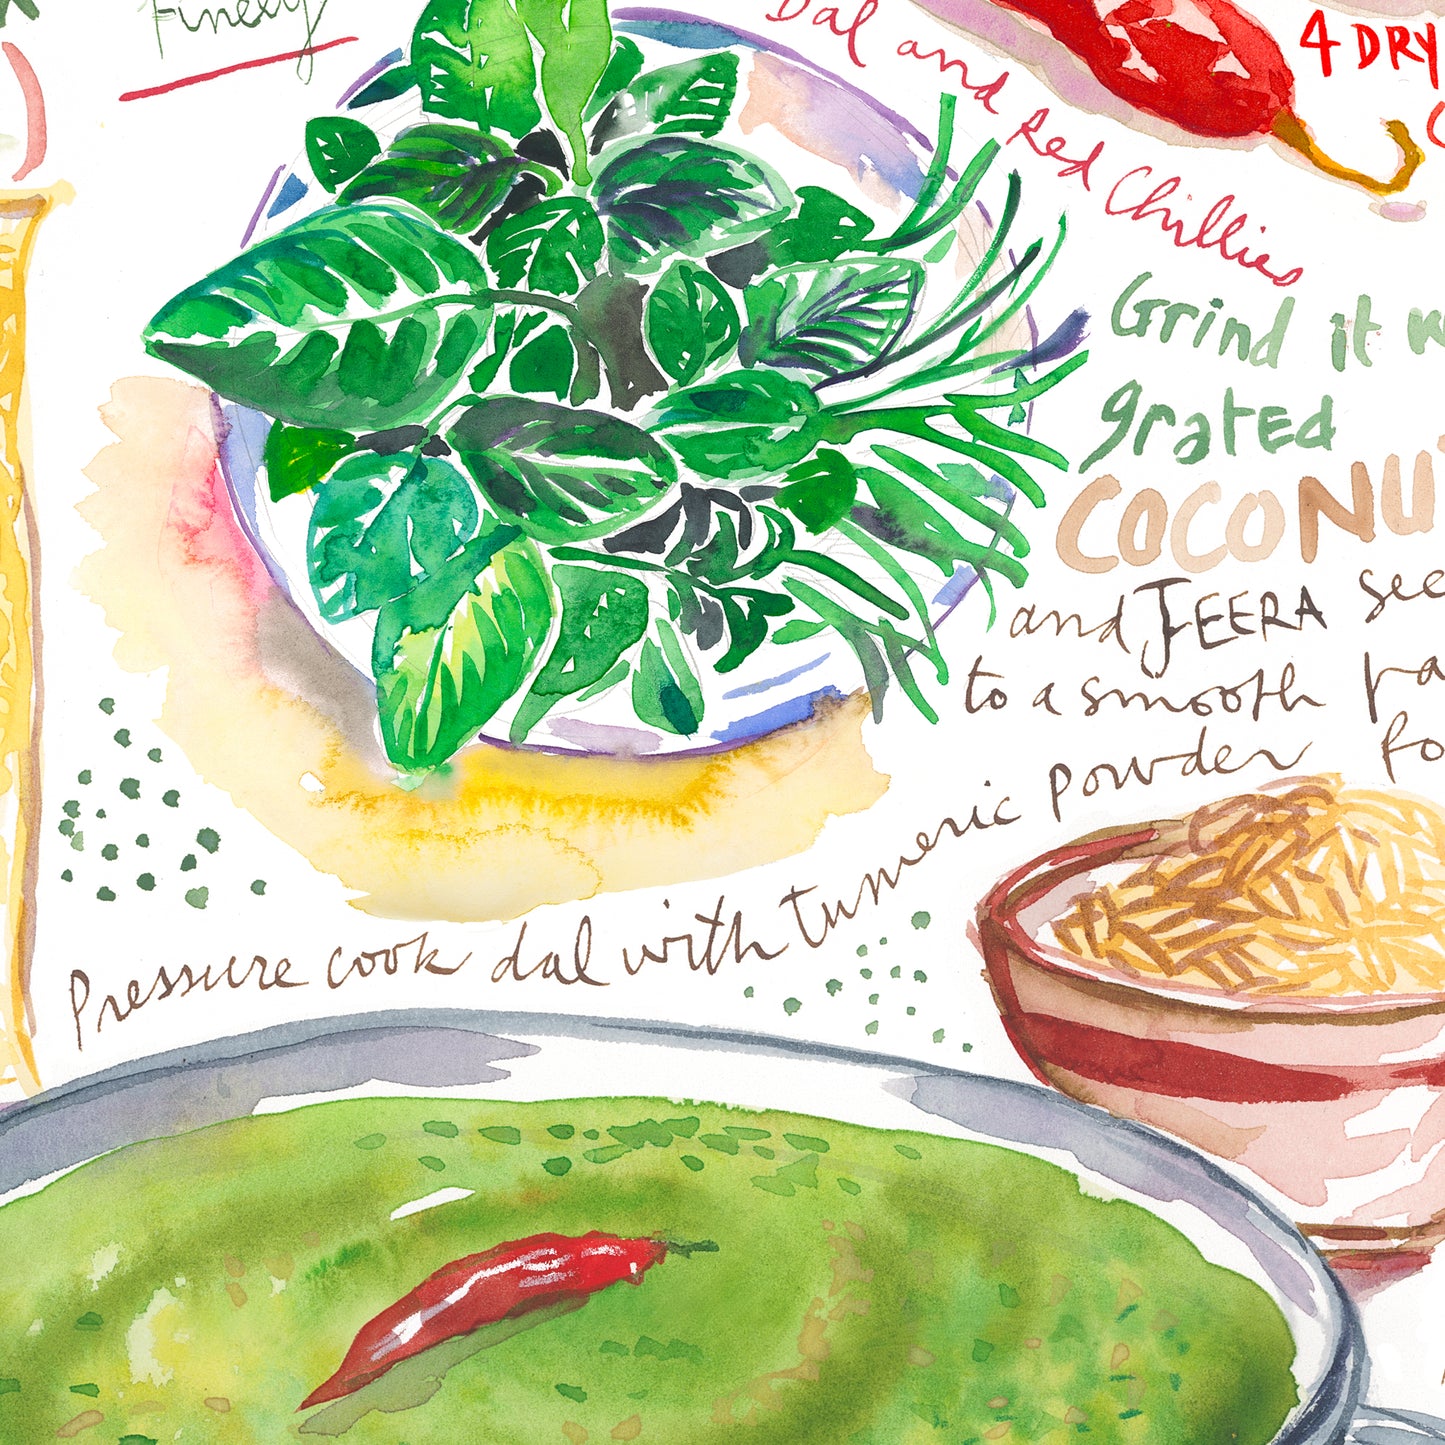 Finely
Dal and Red Chillies
4 DRY
Grind it
grated
COCONU
and JEERA see
to a smooth pa
Pressure cook dal with tumeric powder fo